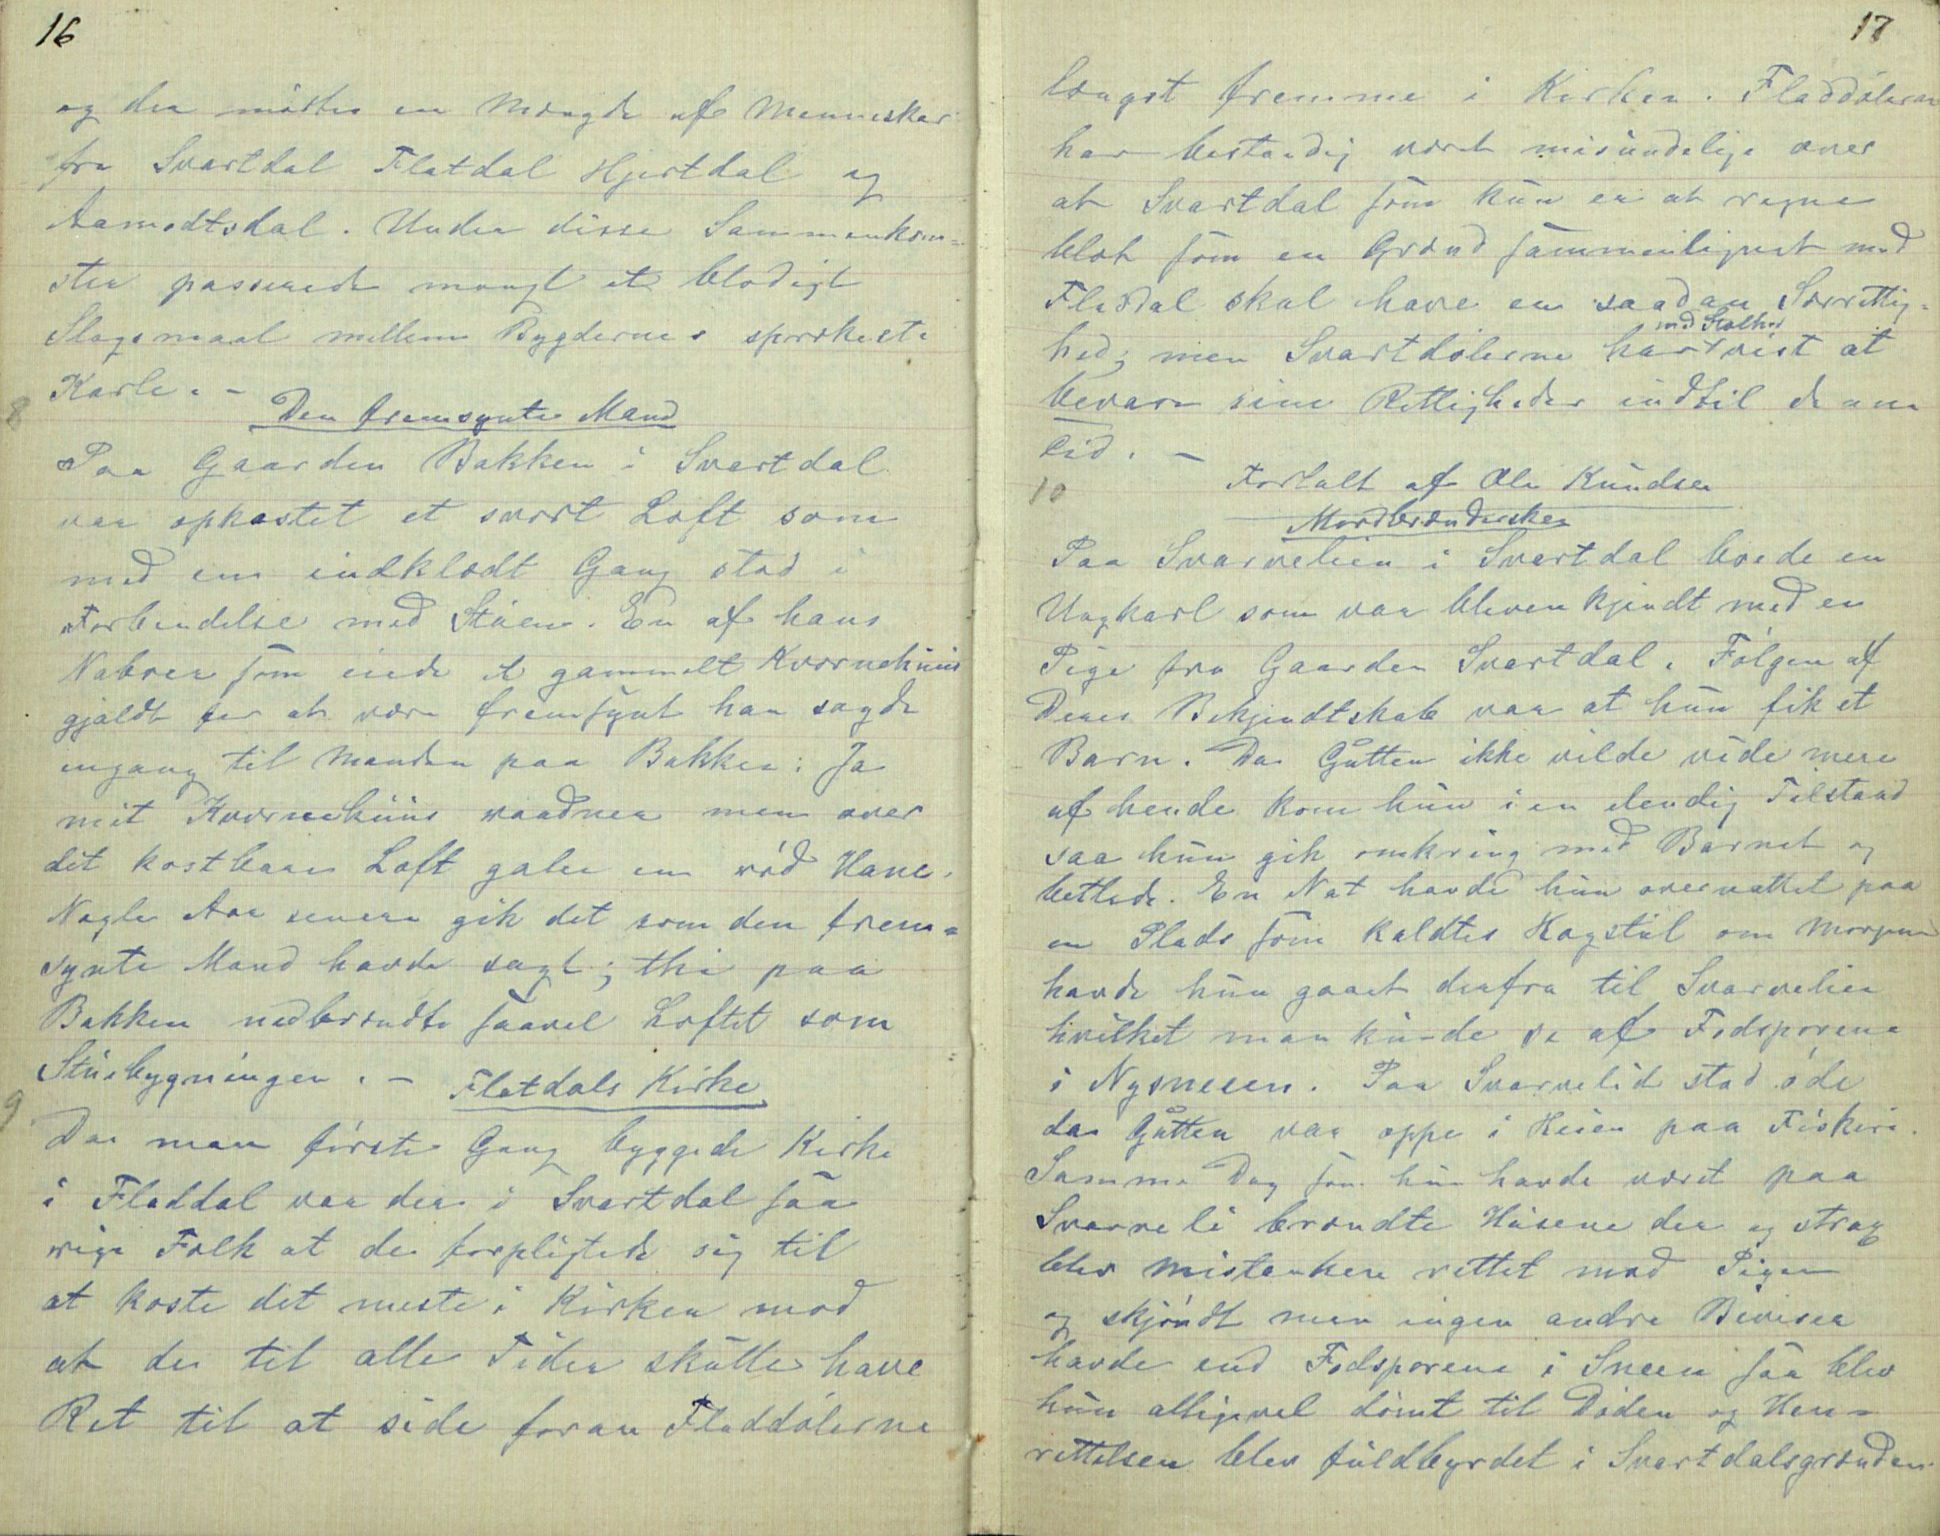 16
og der mödtes en Mængde af Mennesker
fra Svartdal Flatdal Hjertdal og
Aamodtsdal. Under disse Sammenkom=
ster passerede mangt et blodigt
Slagsmaal mellem Bygdernes sprækeste
Karle. -
8
Den fremsynte Mand
Paa Gaarden Bakken i Svartdal
var opkastet et svært Loft som
med en indklædt Gang stod i
Forbindelse med Stuen. En af hans
Naboer som eiede et gammelt Kvørnehuus
gjaldt for at være fremsynt han sagde
engang til Manden paa Bakken: Ja
mit Kvørnehuus raadner men over
det kostbare Loft galer en röd Hane.
Nogle Aar senere gik det som den frem=
synte Mand havde sagt; thi paa
Bakken nedbrændte saavel Loftet som
Stuebygningen. -
9
Flatdals Kirke
Da man förste Gang byggede Kirke
i Fladdal var der i Svartdal saa
rige Folk at de forpligtede sig til
at koste det meste i Kirken mod
at de til alle Tider skulle have
Ret til at side foran Fladdölerne
17
længst fremme i Kirken. Fladdölerne
har bestandig været misundelige over
at Svartdal som kun er at regne
blot som en Grænd sammenlignet med
Fladdal skal have en saadan Særrettig=
hed; men Svartdölerne har med Stolhed vist at
bevare sine Rettigheder indtil denne
Tid. -
Fortalt af Ole Knudsen
10
Mordbrændersken
Paa Svarvelien i Svartdal boede en
Ungkarl som var bleven kjendt med en
Pige fra Gaarden Svartdal. Fölgen af
Deres Bekjendtskab var at hun fik et
Barn. Da Gutten ikke vilde vide mere
af hende kom hun i en elendig Tilstand
saa hun gik omkring med Barnet og
betlede. En Nat havde hun overnattet paa
en Plads som kaldtes Kogstul om Morgenen
havde hun gaaet derfra til Svarvelien
hvilket man kunde se af Fodsporene
i Nysneeen. Paa Svarvelid stod öde
da Gutten var oppe i Heien paa Fiskeri.
Samme Dag som hun havde været paa
Svarveli brændte Husene der og strax
blev Mistanken rettet mod Pigen
og skjöndt man ingen andre Beviser
havde end Fodsporene i Sneen saa blev
hun alligevel dömt til Döden og Hen=
rettelsen blev fuldbyrdet i Svartdalsgrænden.